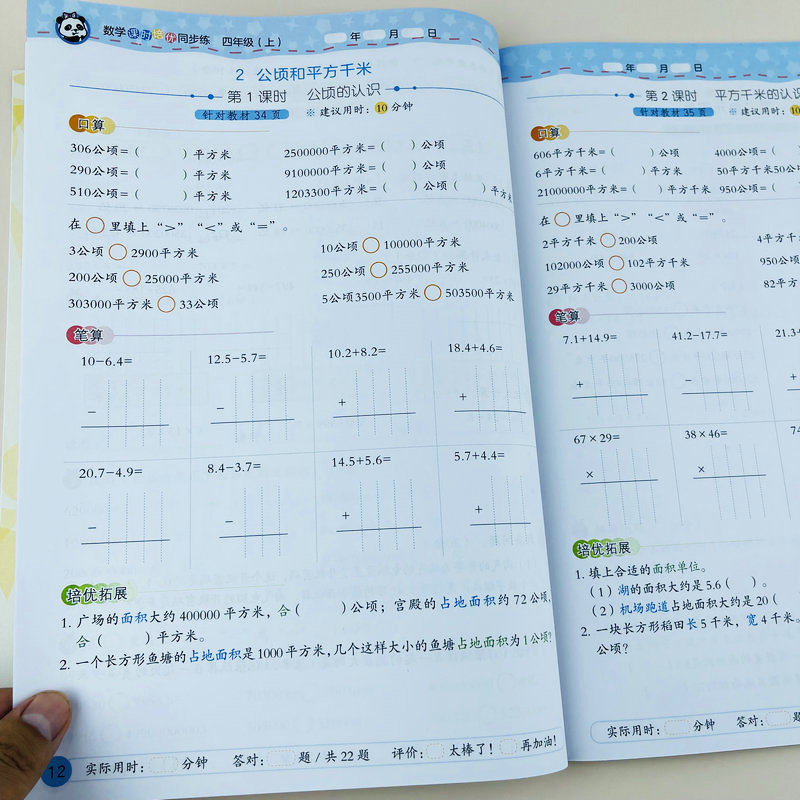 数学课时培优同步练 四年级(上) 年 月 日
2 公顷和平方千米
第1课时 公顷的认识
针对教材34页 ※建议用时:10分钟
口算
306公顷=( )平方米 2500000平方米=( )公顷
290公顷=( )平方米 9100000平方米=( )公顷
510公顷=( )平方米 1203300平方米=( )公顷( )平方米
在○里填上“>”“<”或“=”。
3公顷○2900平方米 10公顷○100000平方米
200公顷○25000平方米 250公顷○255000平方米
303000平方米○33公顷 5公顷3500平方米○503500平方米
笔算
10-6.4= 12.5-5.7= 10.2+8.2= 18.4+4.6=
- - + +
20.7-4.9= 8.4-3.7= 14.5+5.6= 5.7+4.4=
- - + +
培优拓展
1. 广场的面积大约400000平方米,合( )公顷;宫殿的占地面积约72公顷,
合( )平方米。
2. 一个长方形鱼塘的占地面积是1000平方米,几个这样大小的鱼塘占地面积为1公顷?
实际用时: 分钟 答对: 题/共22题 评价: 太棒了! 再加油!
12
年 月 日
第2课时 平方千米的认识
针对教材35页 ※建议用时:10
口算
606平方千米=( )公顷 4000公顷=(
6平方千米=( )平方米 50平方千米50公
21000000平方米=( )平方千米 950公顷=(
在○里填上“>”“<”或“=”。
2平方千米○200公顷 4平方千
102000公顷○102平方千米 950公
29平方千米○3000公顷 82平方
笔算
7.1+14.9= 41.2-17.7= 21.3
+ - +
67×29= 38×46= 74
× ×
培优拓展
1. 填上合适的面积单位。
(1)湖的面积大约是5.6( )。
(2)机场跑道占地面积大约是20(
2. 一块长方形稻田长5千米,宽4千米。
公顷?
实际用时: 分钟 答对: 题